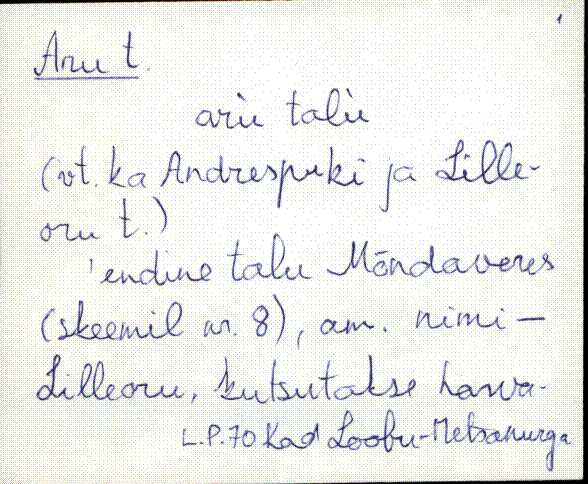 1
Aru t.
aŕu talù
(vt. ka Andrespuki ja Lille-
oru t.)
'endine talu Mõndaveres
(skeemil nr. 8), am. nimi —
Lilleoru, kutsutakse harva.
L.P. 70 Kad Loobu-Metsanurga